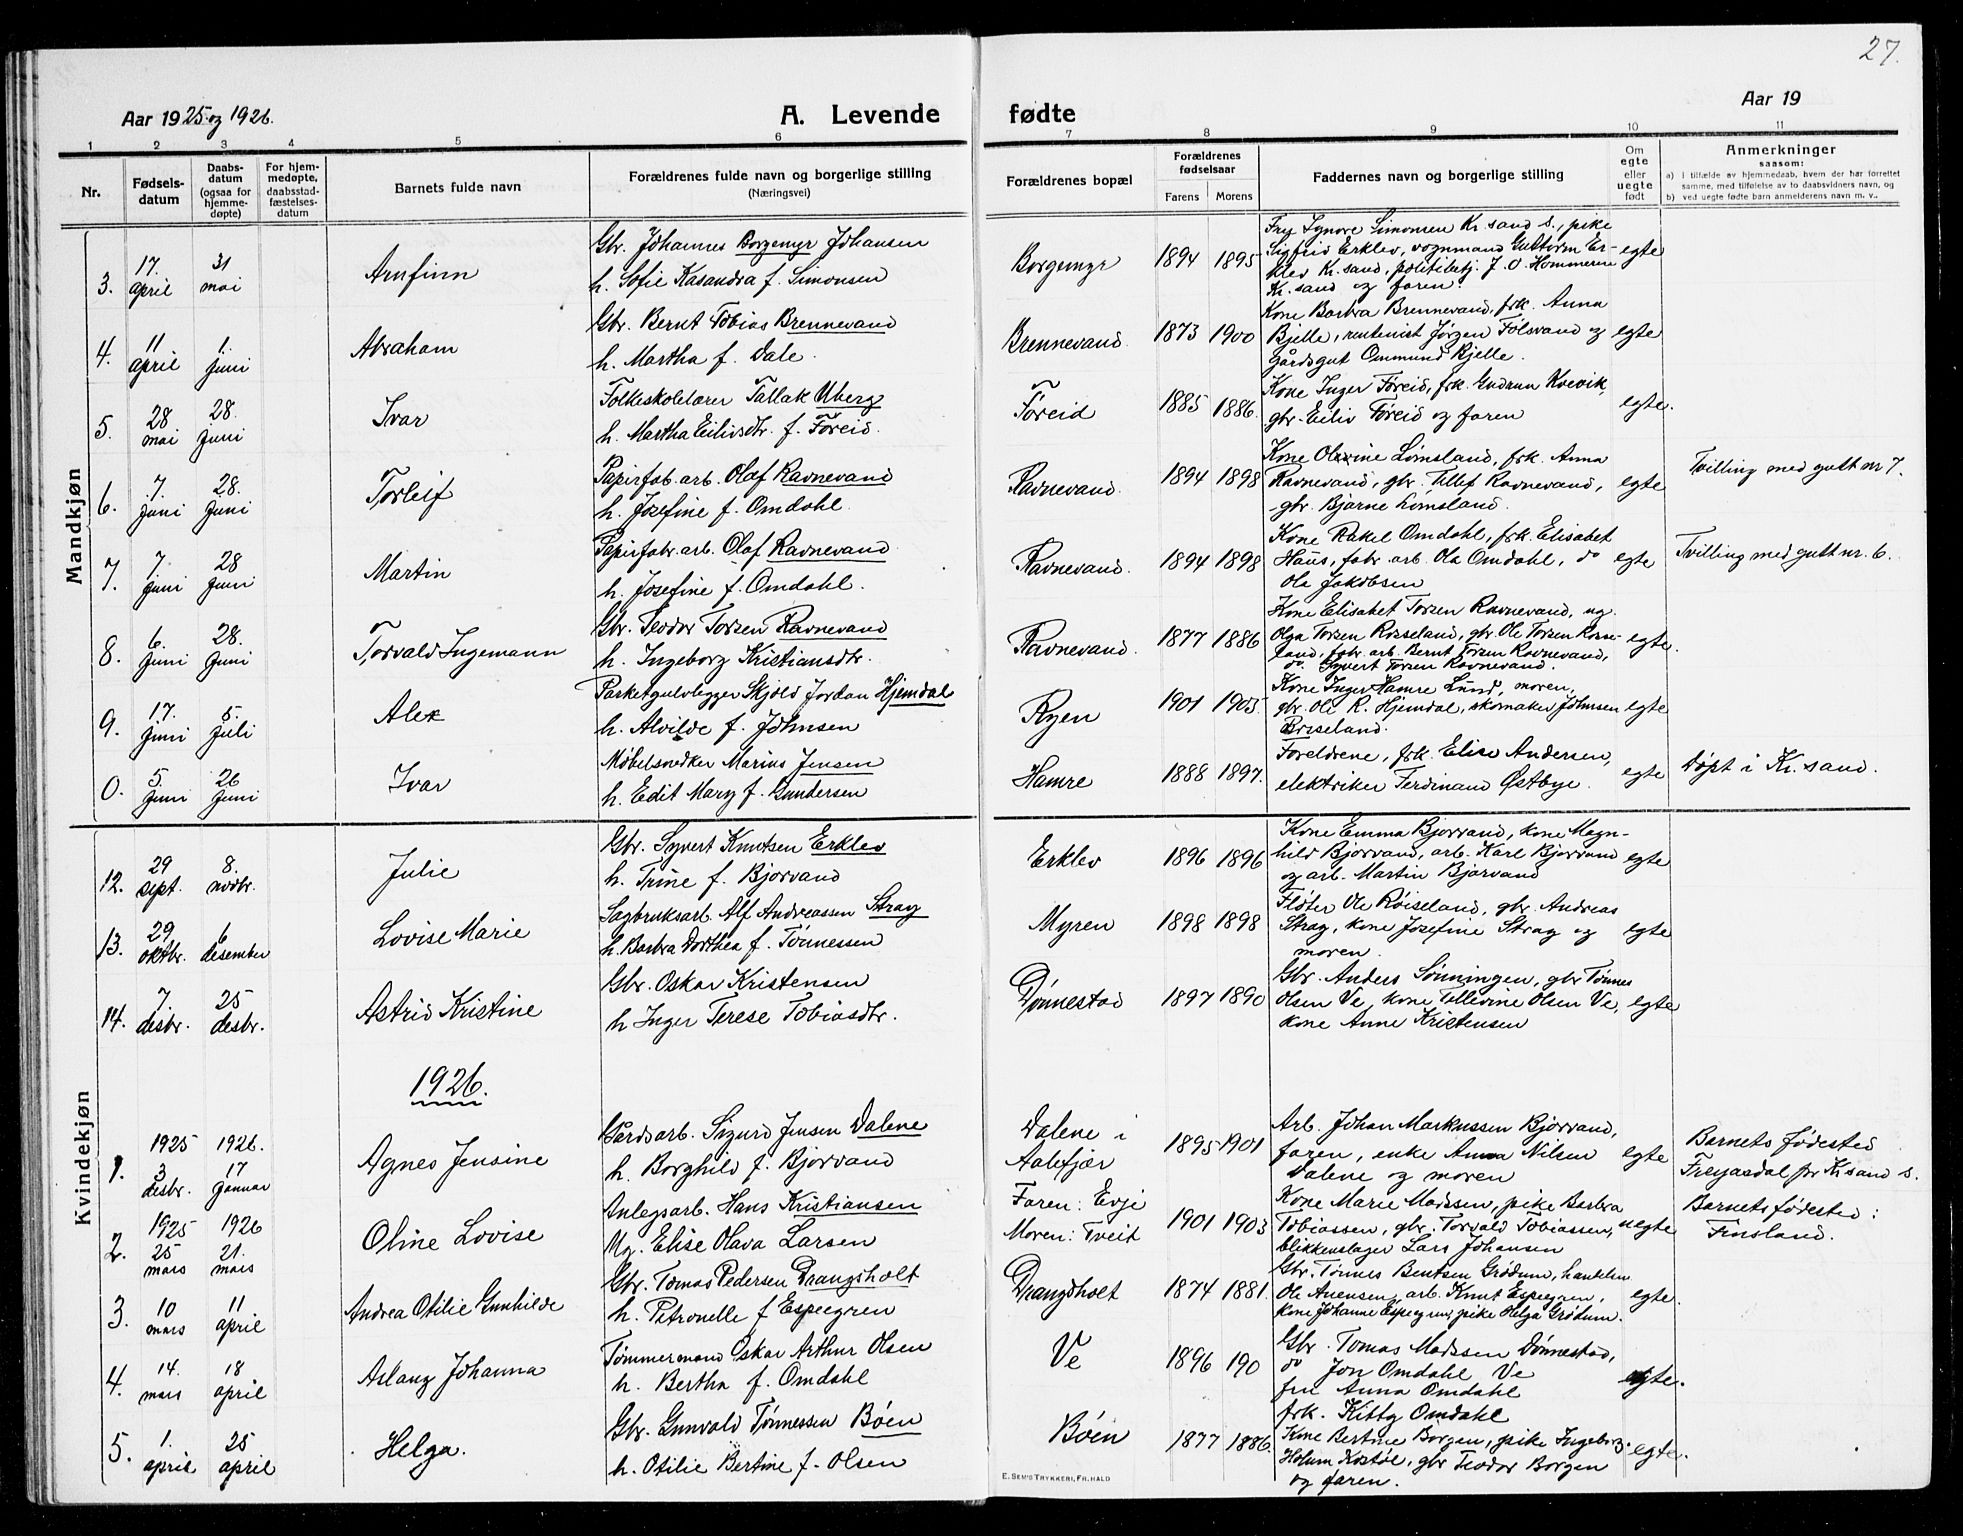 27.
Aar 1925 og 1926.
A. Levende fødte
Aar 19
1 2 3 4 5 6 7 8 9 10 11
Nr.
Fødsels-
datum
Daabs-
datum
(ogsaa for
hjemme-
døpte)
For hjem-
medøpte,
daabsstad-
fæstelses-
datum
Barnets fulde navn
Forældrenes fulde navn og borgerlige stilling
(Næringsvei)
Forældrenes bopæl
Forældrenes
fødselsaar
Farens Morens
Faddernes navn og borgerlige stilling
Om
egte
eller
uegte
født
Anmerkninger
saasom:
a) i tilfælde av hjemmedaab, hvem der har forrettet
samme, med tilføielse av to daabsvidners navn, og
b) ved uegte fødte barn anmelderens navn m. v..
Mandkjøn
3. 17. april 31 mai Arnfinn
Gbr. Johannes Borgemyr Johansen
h. Sofie Kasandra f. Simonsen
Borgemyr 1894 1895
Fry Synøve Simonsen Kr.sand S., pike
Sigfrid Erklev, vognmand Guttorm Er-
klev Kr.sand, politibetj. J. O. Hommeren
Kr.sand og faren.
egte
4. 11 april 1. juni Abraham
Gbr. Bernt Tobias Brennevand
h. Martha f. Dale.
Brennevand. 1873 1900
Kone Barbra Brennevand, frk. Anna
Bjelle, rentenist Jørgen Følsvand og
gårdsgut Ommund Kjelle.
egte
5. 28 mai 28. juni Ivar
Folkeskolelærer Tallak Uberg
h. Martha Eilivsdtr. f. Føreid.
Føreid 1885 1886.
Kone Inger Føreid, frk. Gudrun Kvevik,
gbr. Eiliv Føreid og faren
egte.
6. 7. juni 28. juni Torleif
Papirfab.arb. Olaf Ravnevand
h. Josefine f. Omdahl.
Ravnevand. 1894 1898
Kone Olevine Lømsland, frk. Anna
Ravnevand, gbr. Tellef Ravnevand,
gbr. Bjarne Lømsland.
egte
Tvilling med gutt nr 7.
7. 7. juni 28 juni Martin
Papirfabr.arb. Olaf Ravnevand
h. Josefine f. Omdahl.
Ravnevand. 1894 1898
Kone Rakel Omdahl, frk. Elisabet
Haus, fabr. arb. Ola Omdahl, do
Ola Jakobsen
egte
Tvilling med gutt nr. 6.
8. 6. juni 28. juni Torvald Ingemann
Gbr. Teodor Torsen Ravnevand
h. Ingeborg Kristiansdtr.
Ravnevand. 1877 1886
Kone Elisabet Torsen Ravnevand, ug.
Olga Torsen Rosseland, gbr. Ole Torsen Rosse-
land, fabr. arb. Bernt Torsen Ravnevand,
do. Syvert Torsen Ravnevand.
egte.
9. 17. juni 5. juli Alex
Parketgulvlegger Skjold Jordan Hjemdal
h. Alvilde f. Johnsen
Ryen 1901 1905.
Kone Inger Hamre Lund, moren,
gbr. Ole R. Hjemdal, skomaker Johnsen
Briseland.
egte
0. 5. juni 26 juni Ivar
Møbelsnedker Marius Jensen
h. Edit Mary f. Gundersen
Hamre 1888 1897.
Foreldrene, frk. Elise Andersen,
elektriker Ferdinand Østbye.
egte
Døpt i Kr.sand.
Kvindekjøn
12. 29 sept. 8. novbr. Julie
Gbr. Syvert Knutsen Erklev
h. Trine f. Bjorvand
Erklev 1896 1896
Kone Emma Bjorvand, kone Magn-
hild Bjorvand, arb. Karl Bjorvand
og arb. Martin Bjorvand
egte
13. 29 oktbr. 6 desember Lovise Marie
Sagbruksarb. Alf Andreassen Stray
h. Barbra Dorthea f. Tønnessen
Myren 1898 1898
Fløter Ole Røiseland, gbr. Andreas
Stray, kone Josefine Stray og
moren.
egte
14. 7. desbr. 25 desbr. Astrid Kristine
Gbr. Oskar Kristensen
h Inger Terese Tobiasdtr.
Dønnestad 1897 1890
Gbr. Anders Sønningen, gbr Tønnes
Olsen Ve, kone Tellevine Olsen Ve,
kone Anne Kristensen
egte
1926.
1. 1925 3 desbr. 1926. 17 januar Agnes Jensine
Gårdsarb. Sigurd Jensen Dalene
h. Borghild f. Bjorvand
Dalene i
Aalefjær
1895 1901
Arb. Johan Markussen Bjorvand,
faren, enke Anna Nilsen
Dalene og moren
egte
Barnets fødested
Freyasdal pr Kr.sand S.
2. 1925 25 mars 1926 21. mars Oline Lovise
Anlegsarb. Hans Kristiansen
Ug. Elise Olava Larsen
Faren: Evje
Moren: Tveit
1901 1903
Kone Marie Madssen, pike Barbra
Tobiassen, gbr. Torvald Tobiassen,
blikkenslager Lars Johansen
uegte
Barnets fødested:
Finsland.
3. 10 mars 11 april Andrea Otilie Gunhilde
Gbr. Tomas Pedersen Drangsholt
h. Petronelle f Espegren
Drangsholt 1874 1881.
Gbr. Tønnes Bentsen Grødum, handelsm
Ole Auensen, arb. Knut Espegren,
kone Johanne Espegren, pike Helga Grødum.
egte.
4. 14. mars 18 april Aslaug Johanna
Tømmermand Oskar Arthur Olsen
h. Bertha f. Omdahl
Ve 1896 190
Gbr. Tomas Madssen Dønnestad,
do Jon Omdahl Ve
fru Anna Omdahl
frk. Kitty Omdahl
egte.
5. 1. april 25 april Helga.
Gbr. Gunvald Tønnessen Bøen
h. Otilie Bertine f. Olsen
Bøen 1877 1886.
Kone Bertine Borgen, pike Ingeborg
Holum Kostøl, gbr Teodor Borgen
og faren.
egte.
E. SEM'S TRYKKERI, FR.HALD